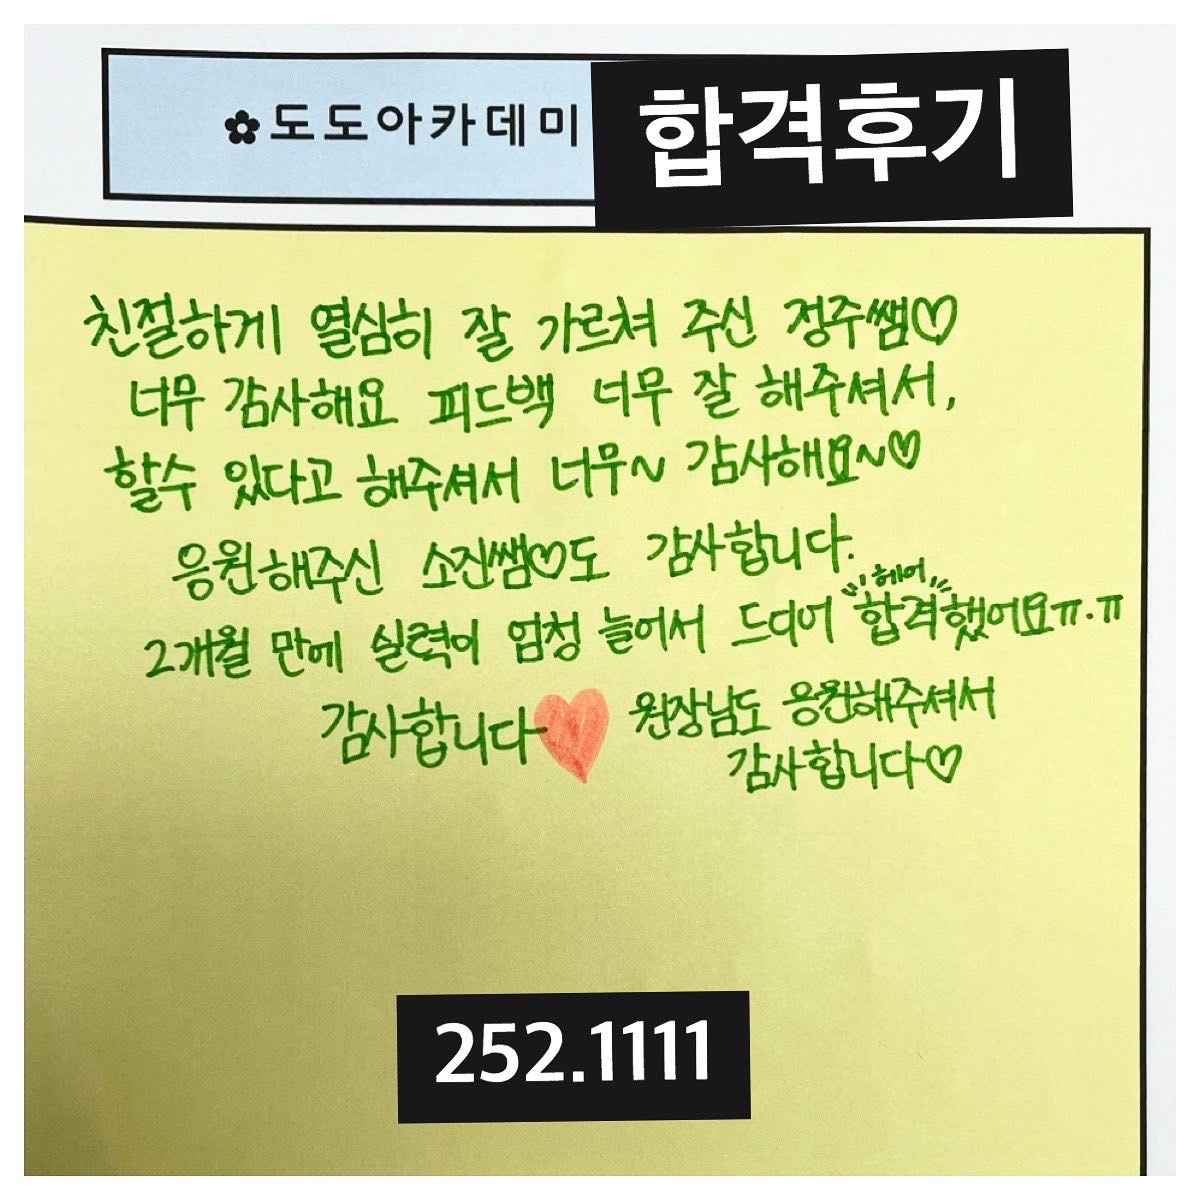 ✿도도아카데미 합격후기
친절하게 열심히 잘 가르쳐 주신 정주쌤♡
너무 감사해요 피드백 너무 잘 해주셔서,
할수 있다고 해주셔서 너무~ 감사해요~♡
응원해주신 소진쌤♡도 감사합니다.
"헤어"
2개월 만에 실력이 엄청 늘어서 드디어 합격했어요ㅠ.ㅠ
감사합니다♥ 원장님도 응원해주셔서
감사합니다♡
252.1111